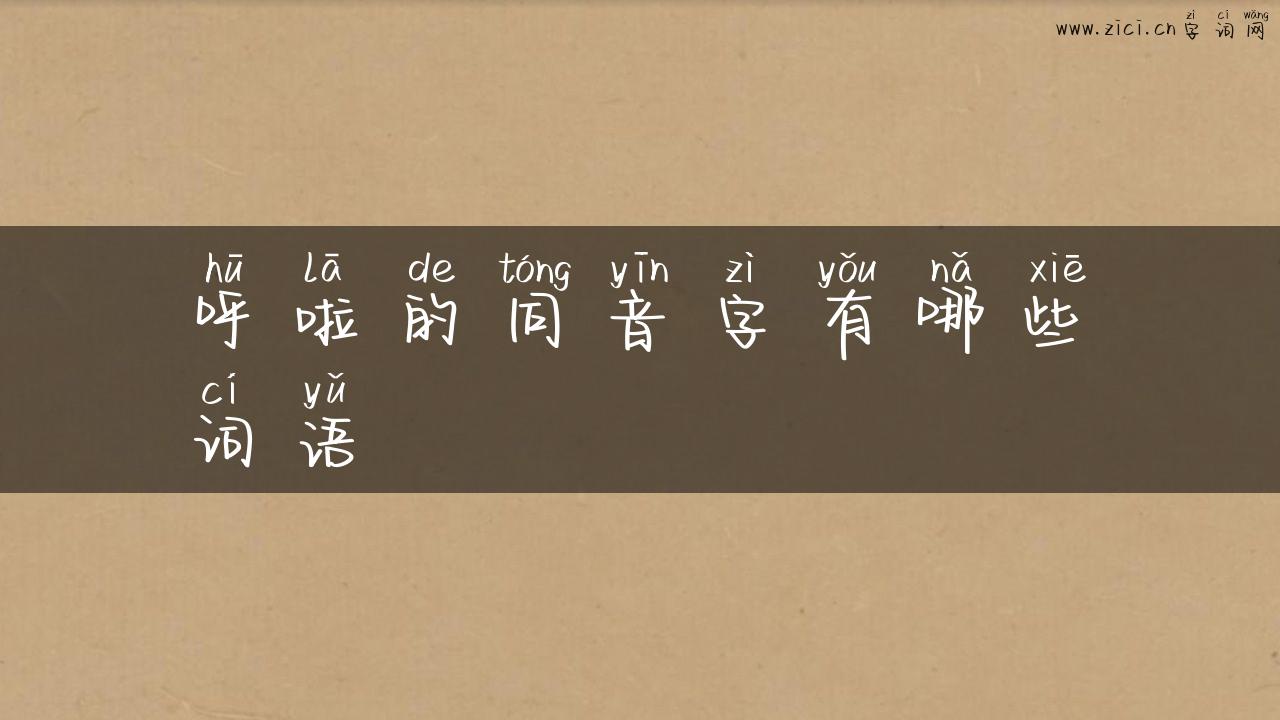 zì cí wǎng
www.zici.cn 字词网
hū lā de tóng yīn zì yǒu nǎ xiē
呼啦的同音字有哪些
cí yǔ
词语